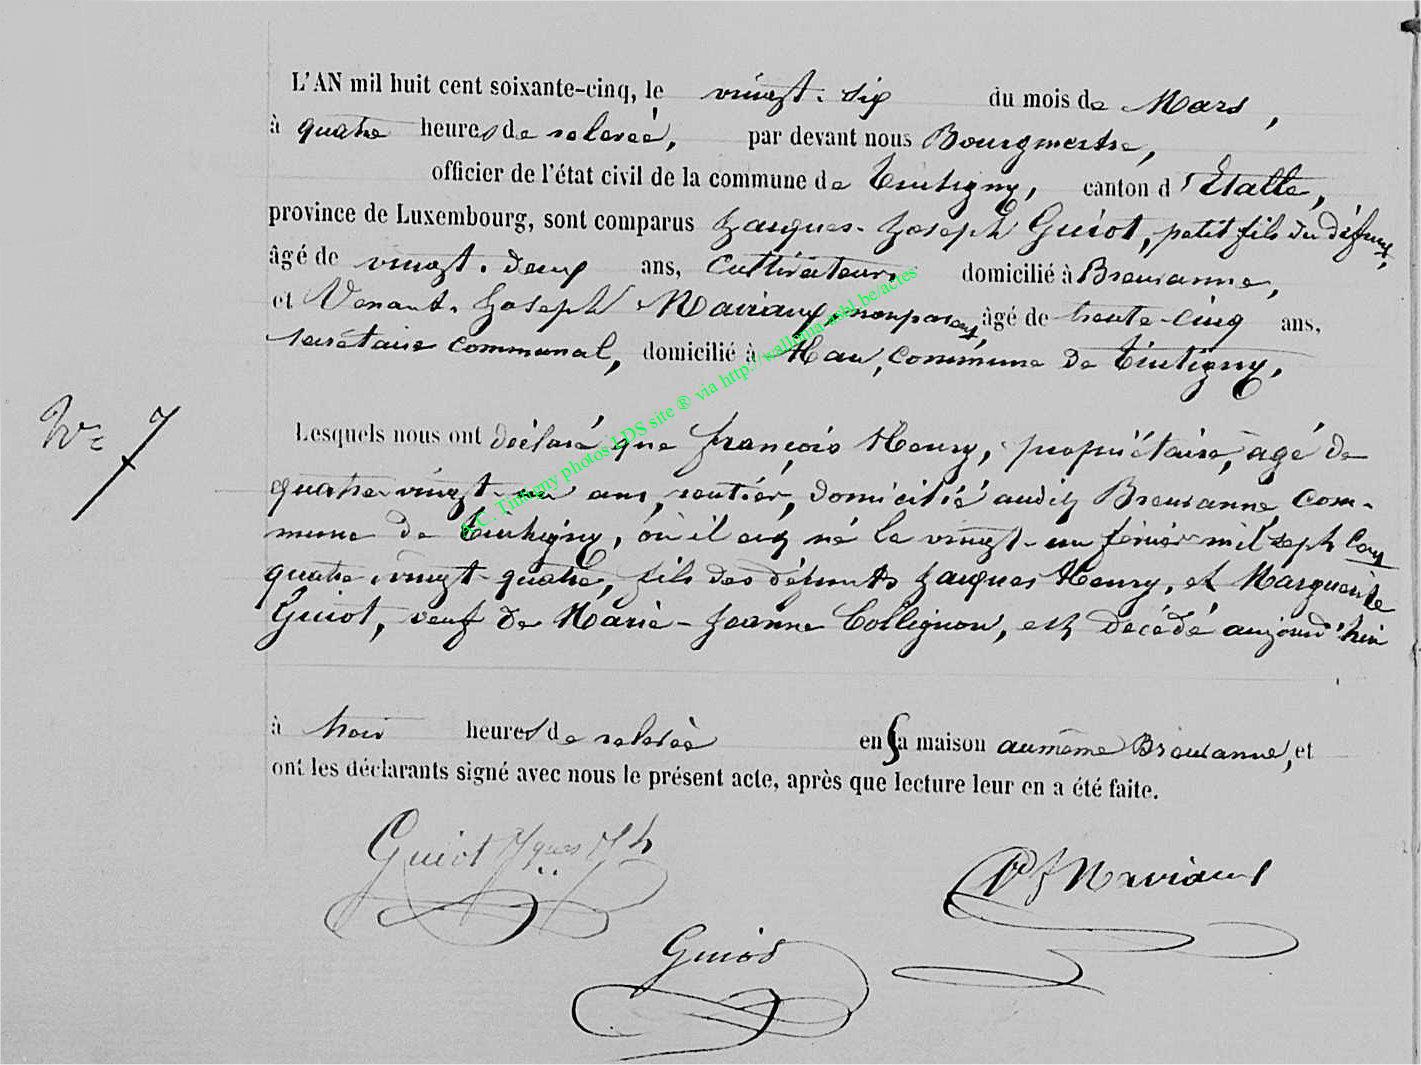 L'AN mil huit cent soixante-cinq, le vingt-six du mois de Mars,
à quatre heures de relevée, par devant nous Bourgmestre,
officier de l'état civil de la commune de Tintigny, canton d'Etalle,
province de Luxembourg, sont comparus Jacques-Joseph Guiot, petit fils du défunt,
âgé de vingt-deux ans, cultivateur, domicilié à Breuvanne,
et Venant-Joseph Naviaux, non parent, âgé de trente-cinq ans,
secrétaire communal, domicilié à Han, commune de Tintigny,
N= 7
Lesquels nous ont déclaré que François Henry, propriétaire, âgé de
quatre-vingt-un ans, rentier, domicilié audit Breuvanne, com-
mune de Tintigny, où il est né le vingt-un février mil sept cent
quatre-vingt-quatre, fils des défunts Jacques Henry, et Marguerite
Guiot, veuf de Marie-Jeanne Collignon, est décédé aujourd'hui
à trois heures de relevée en sa maison au même Breuvanne, et
ont les déclarants signé avec nous le présent acte, après que lecture leur en a été faite.
Guiot Jques Jh
Vt J Naviaux
Guiot
A.C. Tintigny photos LDS site ® via http://wallonia-asbl.be/actes